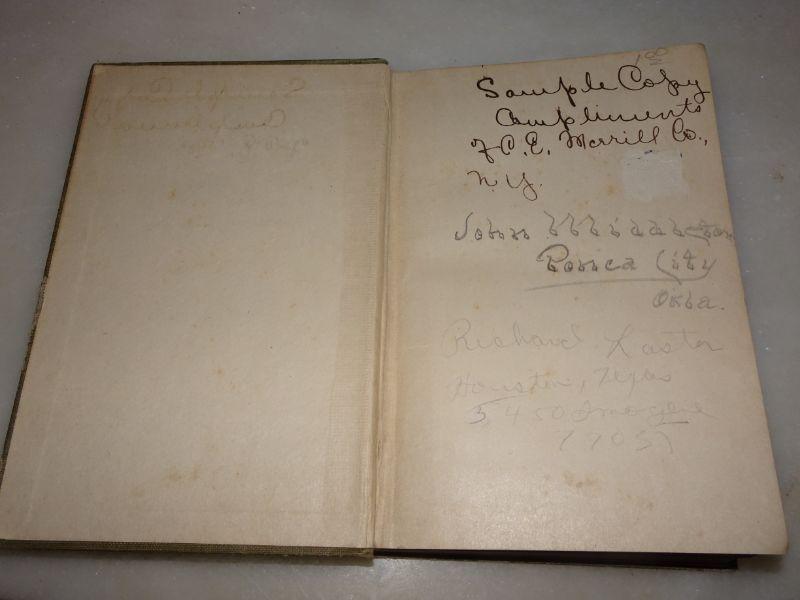 1 00
Sample Copy
Compliments
of C. E. Merrill Co.,
N. Y.
John
Ponca City
Okla.
Richard Kaster
Houston, Texas
5450 Imogene
77057